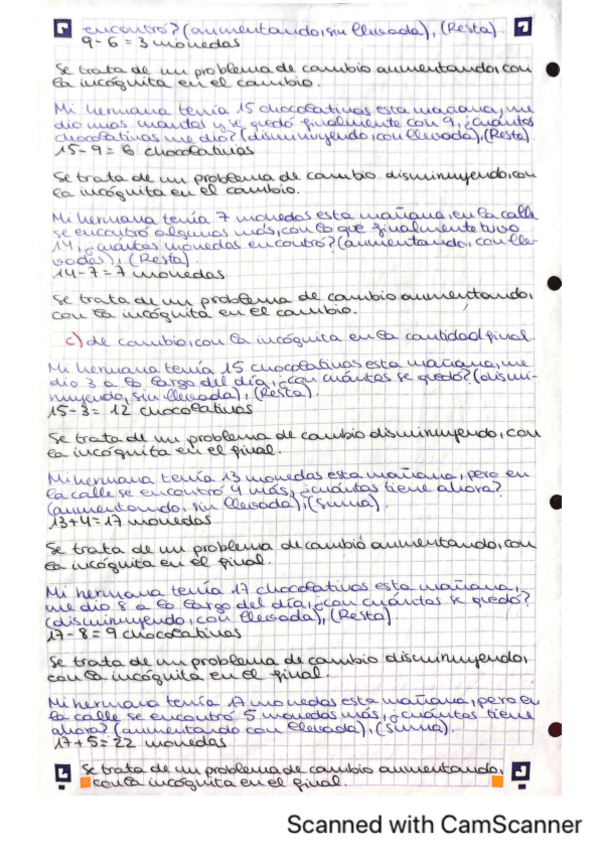 encontró? (aumentando, sin llevada), (Resta).
9 - 6 = 3 monedas
Se trata de un problema de cambio aumentando, con
la incógnita en el cambio.
Mi hermana tenía 15 chocolatinas esta mañana, me
dio unas cuantas y se quedó finalmente con 9, ¿cuántas
chocolatinas me dio? (disminuyendo, con llevada), (Resta)
15 - 9 = 6 chocolatinas
Se trata de un problema de cambio disminuyendo, con
la incógnita en el cambio.
Mi hermana tenía 7 monedas esta mañana, en la calle
se encontró algunas más, con lo que finalmente tuvo
14, ¿cuántas monedas encontró? (aumentando, con lle-
vadas), (Resta).
14 - 7 = 7 monedas
Se trata de un problema de cambio aumentando,
con la incógnita en el cambio.
c) de cambio, con la incógnita en la cantidad final.
Mi hermana tenía 15 chocolatinas esta mañana, me
dio 3 a lo largo del día, ¿con cuántas se quedó? (dismi-
nuyendo, sin llevada), (Resta).
15 - 3 = 12 chocolatinas
Se trata de un problema de cambio disminuyendo, con
la incógnita en el final.
Mi hermana tenía 13 monedas esta mañana, pero en
la calle se encontró 4 más, ¿cuántas tiene ahora?
(aumentando, sin llevada), (Suma).
13 + 4 = 17 monedas
Se trata de un problema de cambio aumentando, con
la incógnita en el final.
Mi hermana tenía 17 chocolatinas esta mañana,
me dio 8 a lo largo del día, ¿con cuántas se quedó?
(disminuyendo, con llevada), (Resta).
17 - 8 = 9 chocolatinas
Se trata de un problema de cambio disminuyendo,
con la incógnita en el final.
Mi hermana tenía 17 monedas esta mañana, pero en
la calle se encontró 5 monedas más, ¿cuántas tiene
ahora? (aumentando con llevada), (Suma).
17 + 5 = 22 monedas
Se trata de un problema de cambio aumentando,
con la incógnita en el final.
Scanned with CamScanner